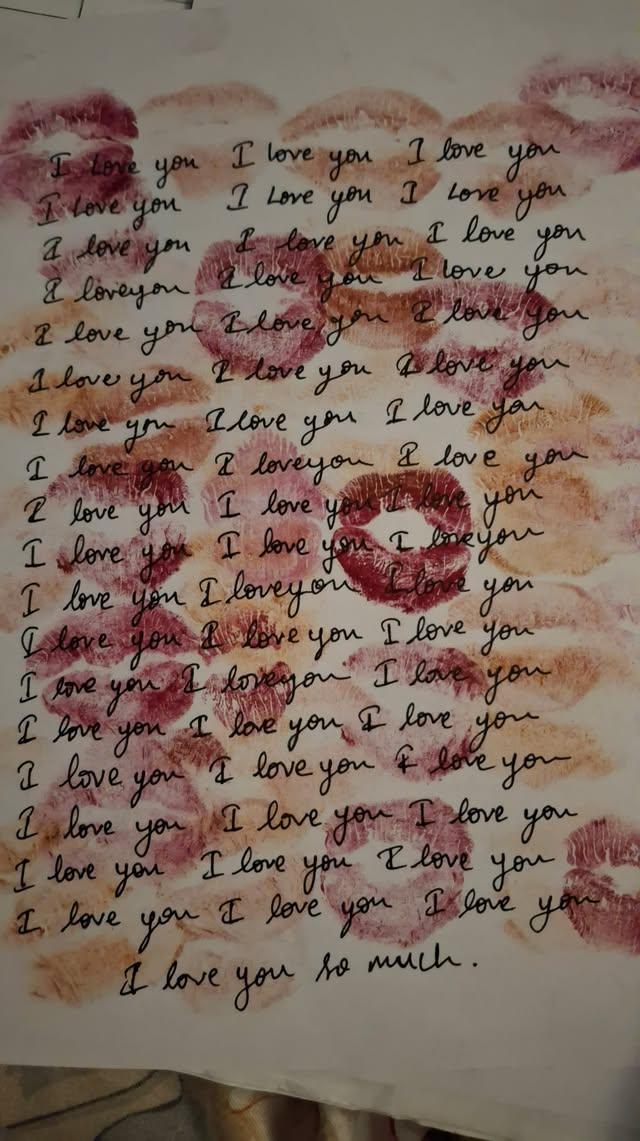 I Love you I love you I love you
I Love you I Love you I Love you
I love you I love you I love you
I loveyou I love you I love you
I love you I love you I love you
I love you I love you I love you
I love you I love you I love you
I love you I loveyou I love you
I love you I love you I love you
I love you I love you I loveyou
I love you I loveyou I love you
I love you I love you I love you
I love you I loveyou I love you
I love you I love you I love you
I love you I love you I love you
I love you I love you I love you
I love you I love you I love you
I love you I love you I love you
I love you so much.